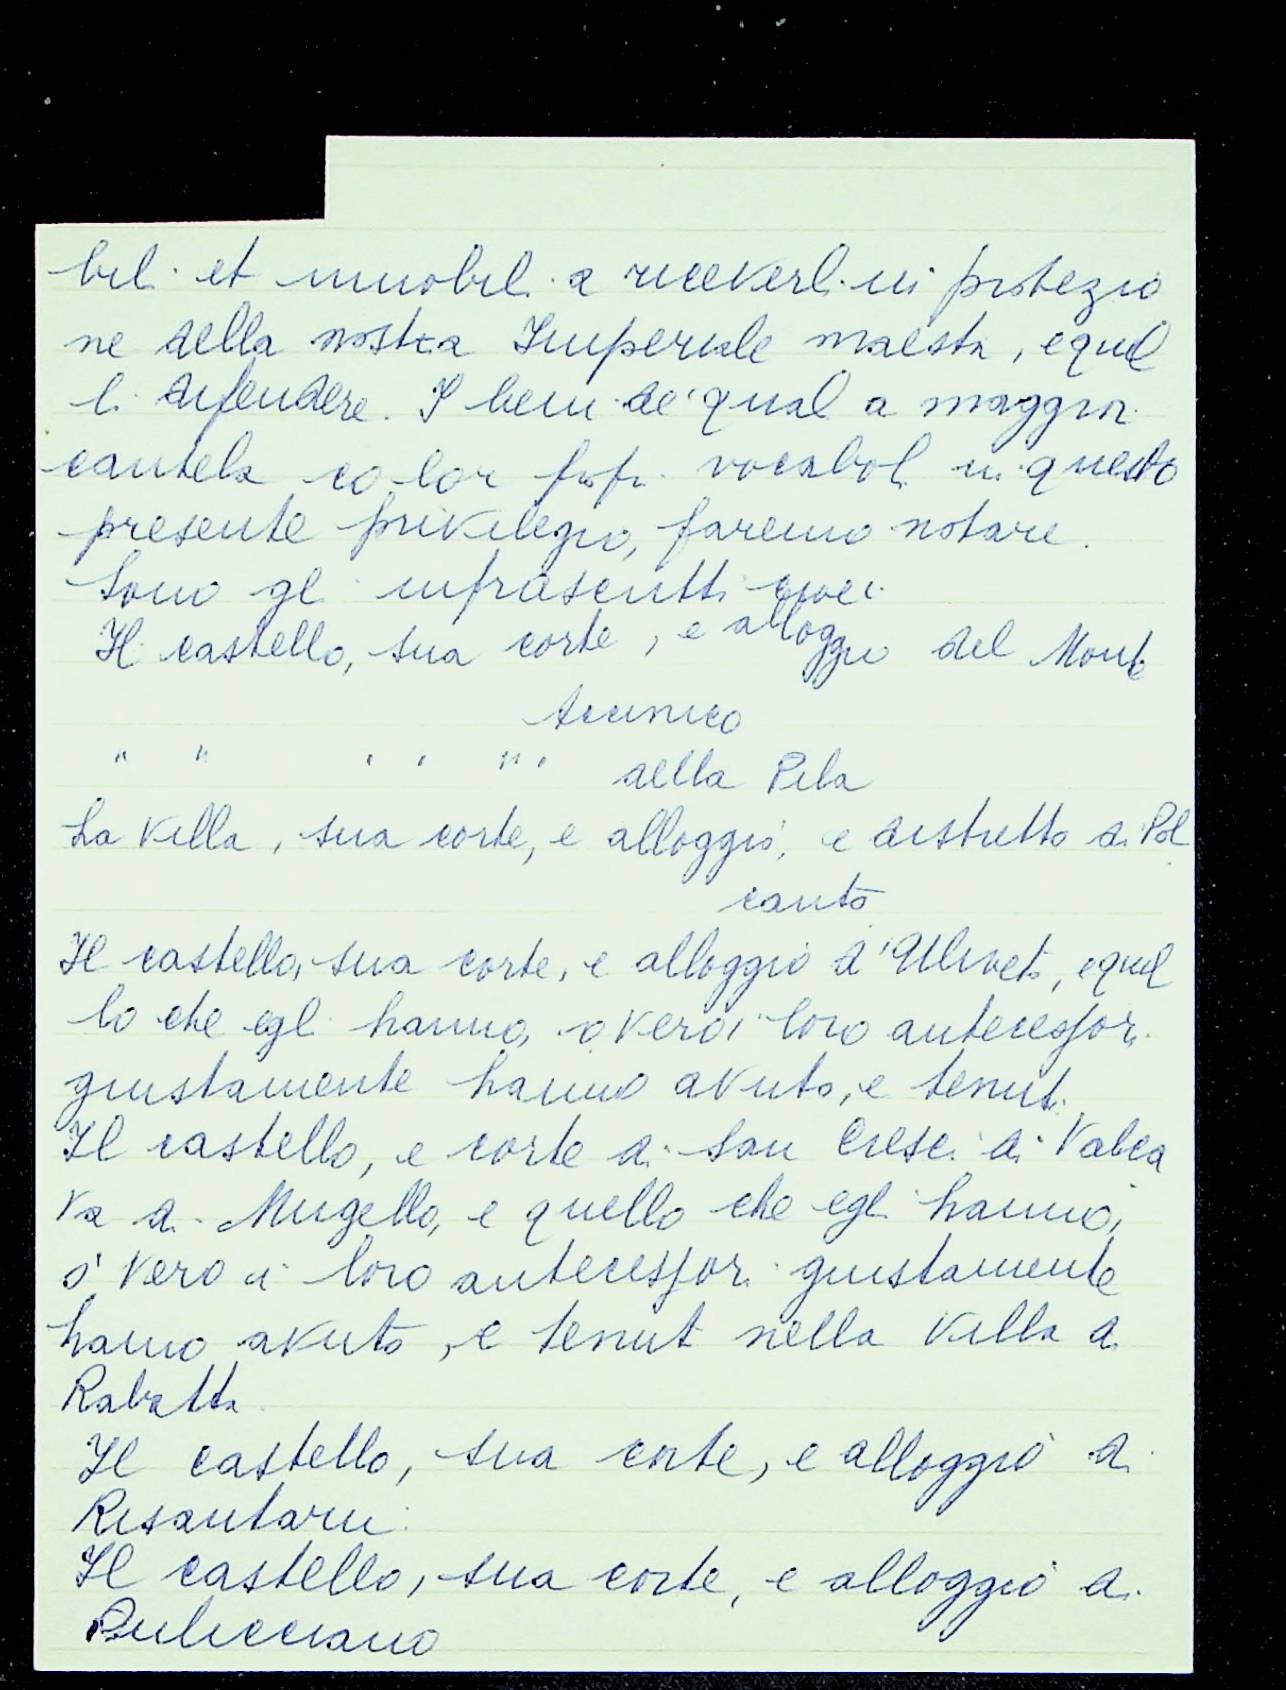 bili et immobili a riceverli in protezio
ne della nostra Imperiale maestà, e quel
li difendere. I beni de' quali a maggior
cautela co lor propri vocaboli in questo
presente privilegio, faremo notare.
Sono gli infrascritti cioè:
Il castello, sua corte, e alloggio del Monte
" " " " " " della Pila
La Villa, sua corte, e alloggio, e distretto di Pol
canto
Il castello, sua corte, e alloggio d'Uliveto, e quel
lo che egli hanno, o vero i loro antecessori
giustamente hanno avuto, e tenuti.
Il castello, e corte di San Cresci di Valca
va di Mugello, e quello che egli hanno,
o' vero i loro antecessori giustamente
hanno avuto, e tenut nella Villa di
Rabatta.
Il castello, sua corte, e alloggio di
Risantarii
Il castello, sua corte, e alloggio di
Pulicciano